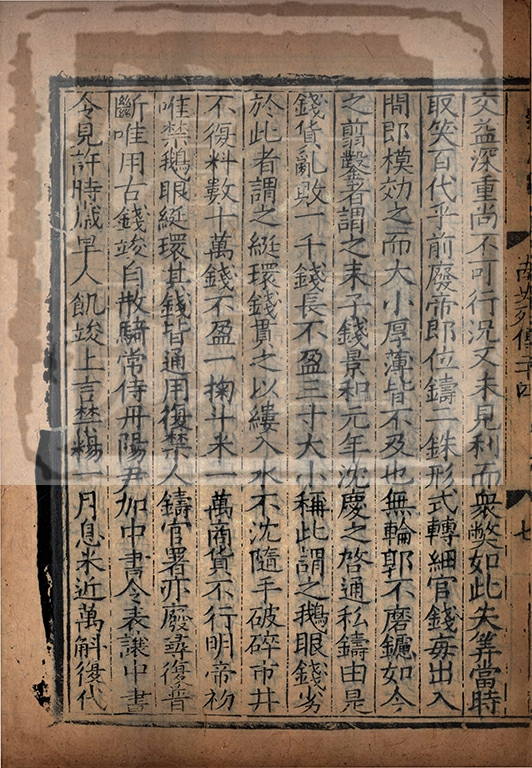 交益深重尚不可行况又未見利而衆弊如此失筭當時
取笑百代乎前廢帝即位鑄二銖形式轉細官錢每出入
間即模効之而大小厚薄皆不及也無輪郭不磨鑢如今
之翦鑿者謂之耒子錢景和元年沈慶之啓通私鑄由是
錢貨亂敗一千錢長不盈三寸大小稱此謂之鵝眼錢劣
於此者謂之綖環錢貫之以縷入水不沈隨手破碎市井
不復料數十萬錢不盈一掬斗米一萬商貨不行明帝初
唯禁鵝眼綖環其餘皆通用復禁人鑄官署亦廢尋復普
斷唯用古錢竣自散騎常侍丹陽尹加中書令表讓中書
令見許時歲旱人飢竣上言禁糶一月息米近萬斛復代
南史列傳二十四
七